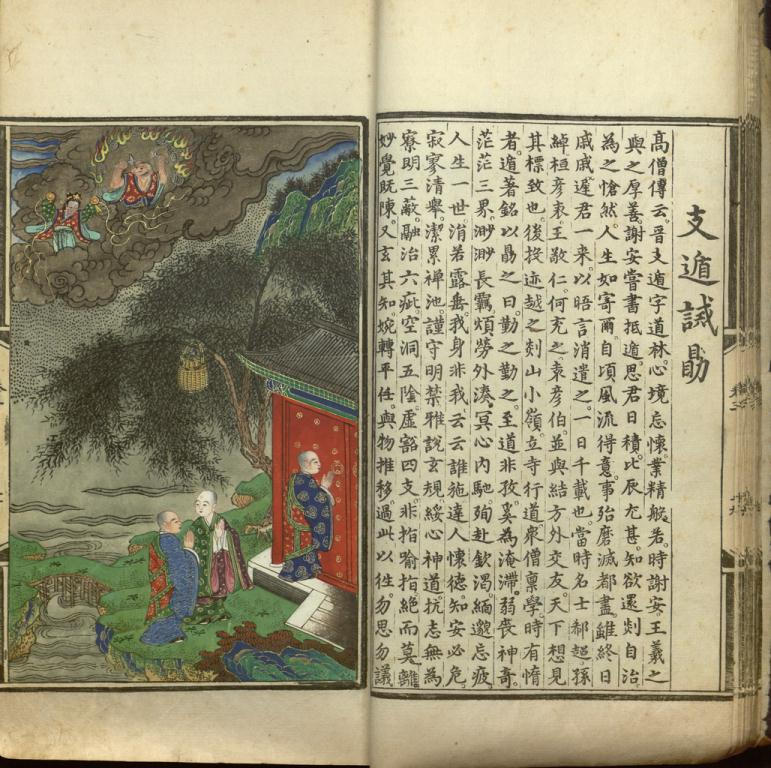 支遁誡勗
高僧傳云。晉支遁字道林。心境忘懷。業精般若。時謝安王羲之
與之厚善。謝安嘗書抵遁。思君日積。比辰尤甚。知欲還剡自治
為之愴然。人生如寄爾。自頃風流得意。事殆磨滅都盡。雖終日
戚戚。遲君一來。以晤言消遣之。一日千載也。當時名士郗超。孫
綽。桓彥表。王敬仁。何充之。袁彥伯。並與結方外交友。天下想見
其標致也。後投迹越之剡山小嶺。立寺行道。衆僧稟學。時有惰
者。遁著銘以勗之曰。勤之勤之。至道非孜。奚為淹滯。弱喪神奇。
茫茫三界。渺渺長羈。煩勞外湊。冥心內馳。殉赴欽渴。緬邈忘疲。
人生一世。涓若露垂。我身非我。云云誰施。達人懷德。知安必危。
寂寥清舉。潔累禪池。謹守明禁。雅說玄規。綏心神道。抗志無為
寮明三蔽。融治六疵。空洞五陰。虛豁四支。非指喻指。絕而莫離
妙覺既陳。又玄其知。婉轉平任。與物推移。過此以往。勿思勿議